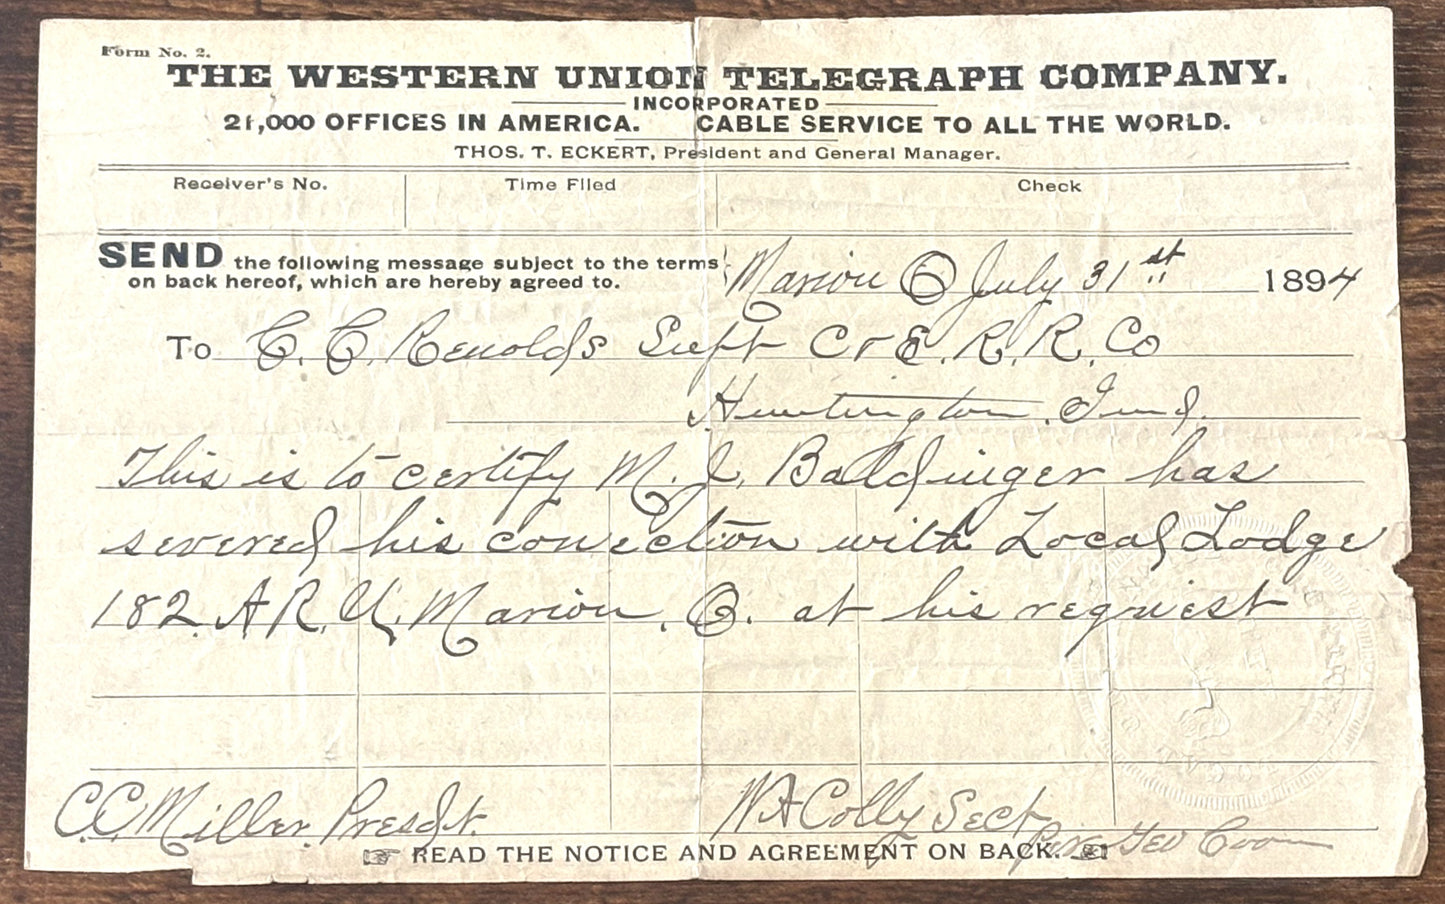 Form No. 2.
THE WESTERN UNION TELEGRAPH COMPANY.
INCORPORATED
21,000 OFFICES IN AMERICA. CABLE SERVICE TO ALL THE WORLD.
THOS. T. ECKERT, President and General Manager.
Receiver's No. Time Filed Check
SEND the following message subject to the terms
on back hereof, which are hereby agreed to.
Marion O July 31st 1894
To C. C. Renolds Supt C & E. R. R. Co
Huntington. Ind.
This is to certify M. J. Baldinger has
severed his conection with Local Lodge
182. A R. U. Marion. O. at his request
C. C. Miller. Presdt. W A Colly Sect
Per Geo Coon
READ THE NOTICE AND AGREEMENT ON BACK.